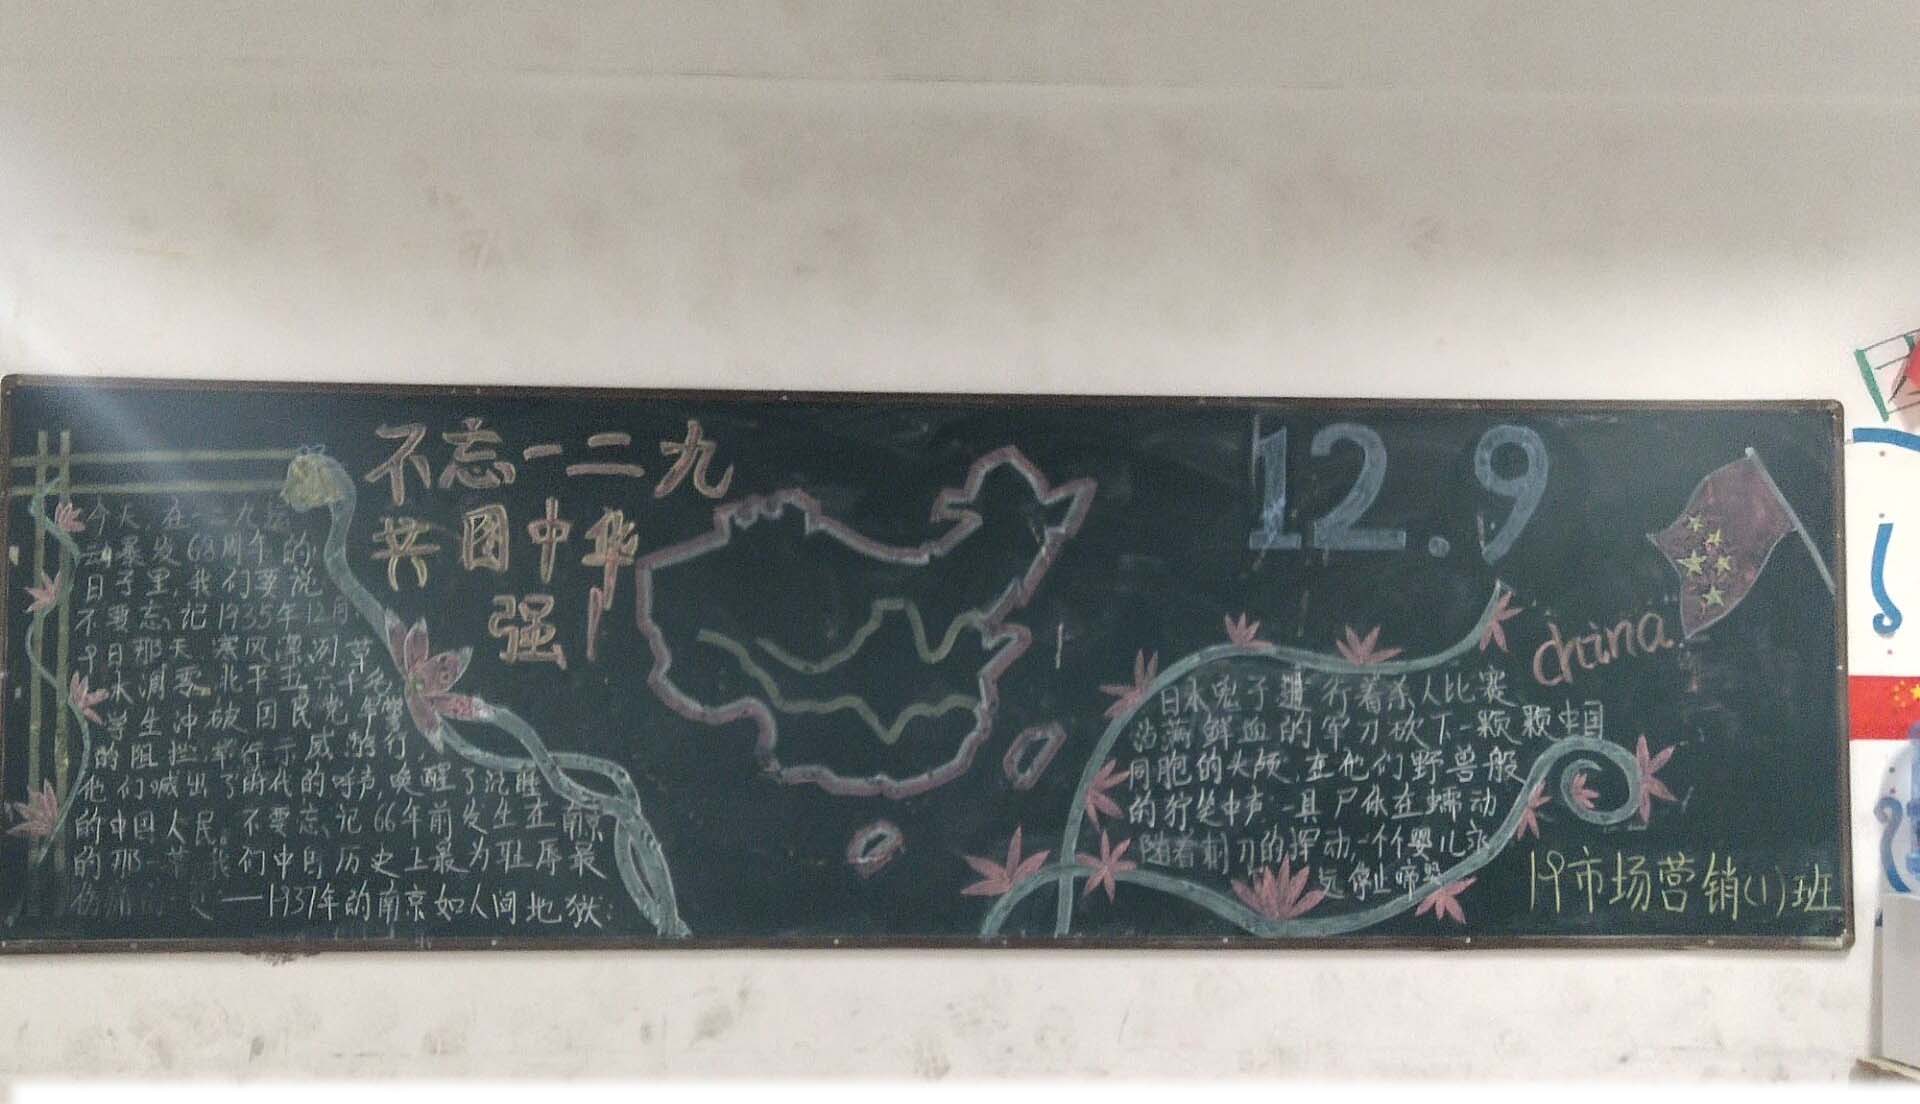 不忘一二九
共国中华
强
今天,在一二九运
动暴发68周年的
日子里,我们要说
不要忘记1935年12月
9日那天寒风凛冽,草
木凋零,北平五六千名
学生冲破国民党军警
的阻拦举行示威游行,
他们喊出了时代的呼声,唤醒了沉睡
的中国人民。不要忘记66年前发生在南京
的那一幕,我们中国历史上最为耻辱最
伤痛的一史——1937年的南京如人间地狱:
12.9
china
日本鬼子进行着杀人比赛
沾满鲜血的军刀砍下一颗颗中国
同胞的头颅,在他们野兽般
的狞笑中声 一具尸体在蠕动
随着刺刀的挥动,一个个婴儿永
远停止啼哭
19市场营销(1)班
团